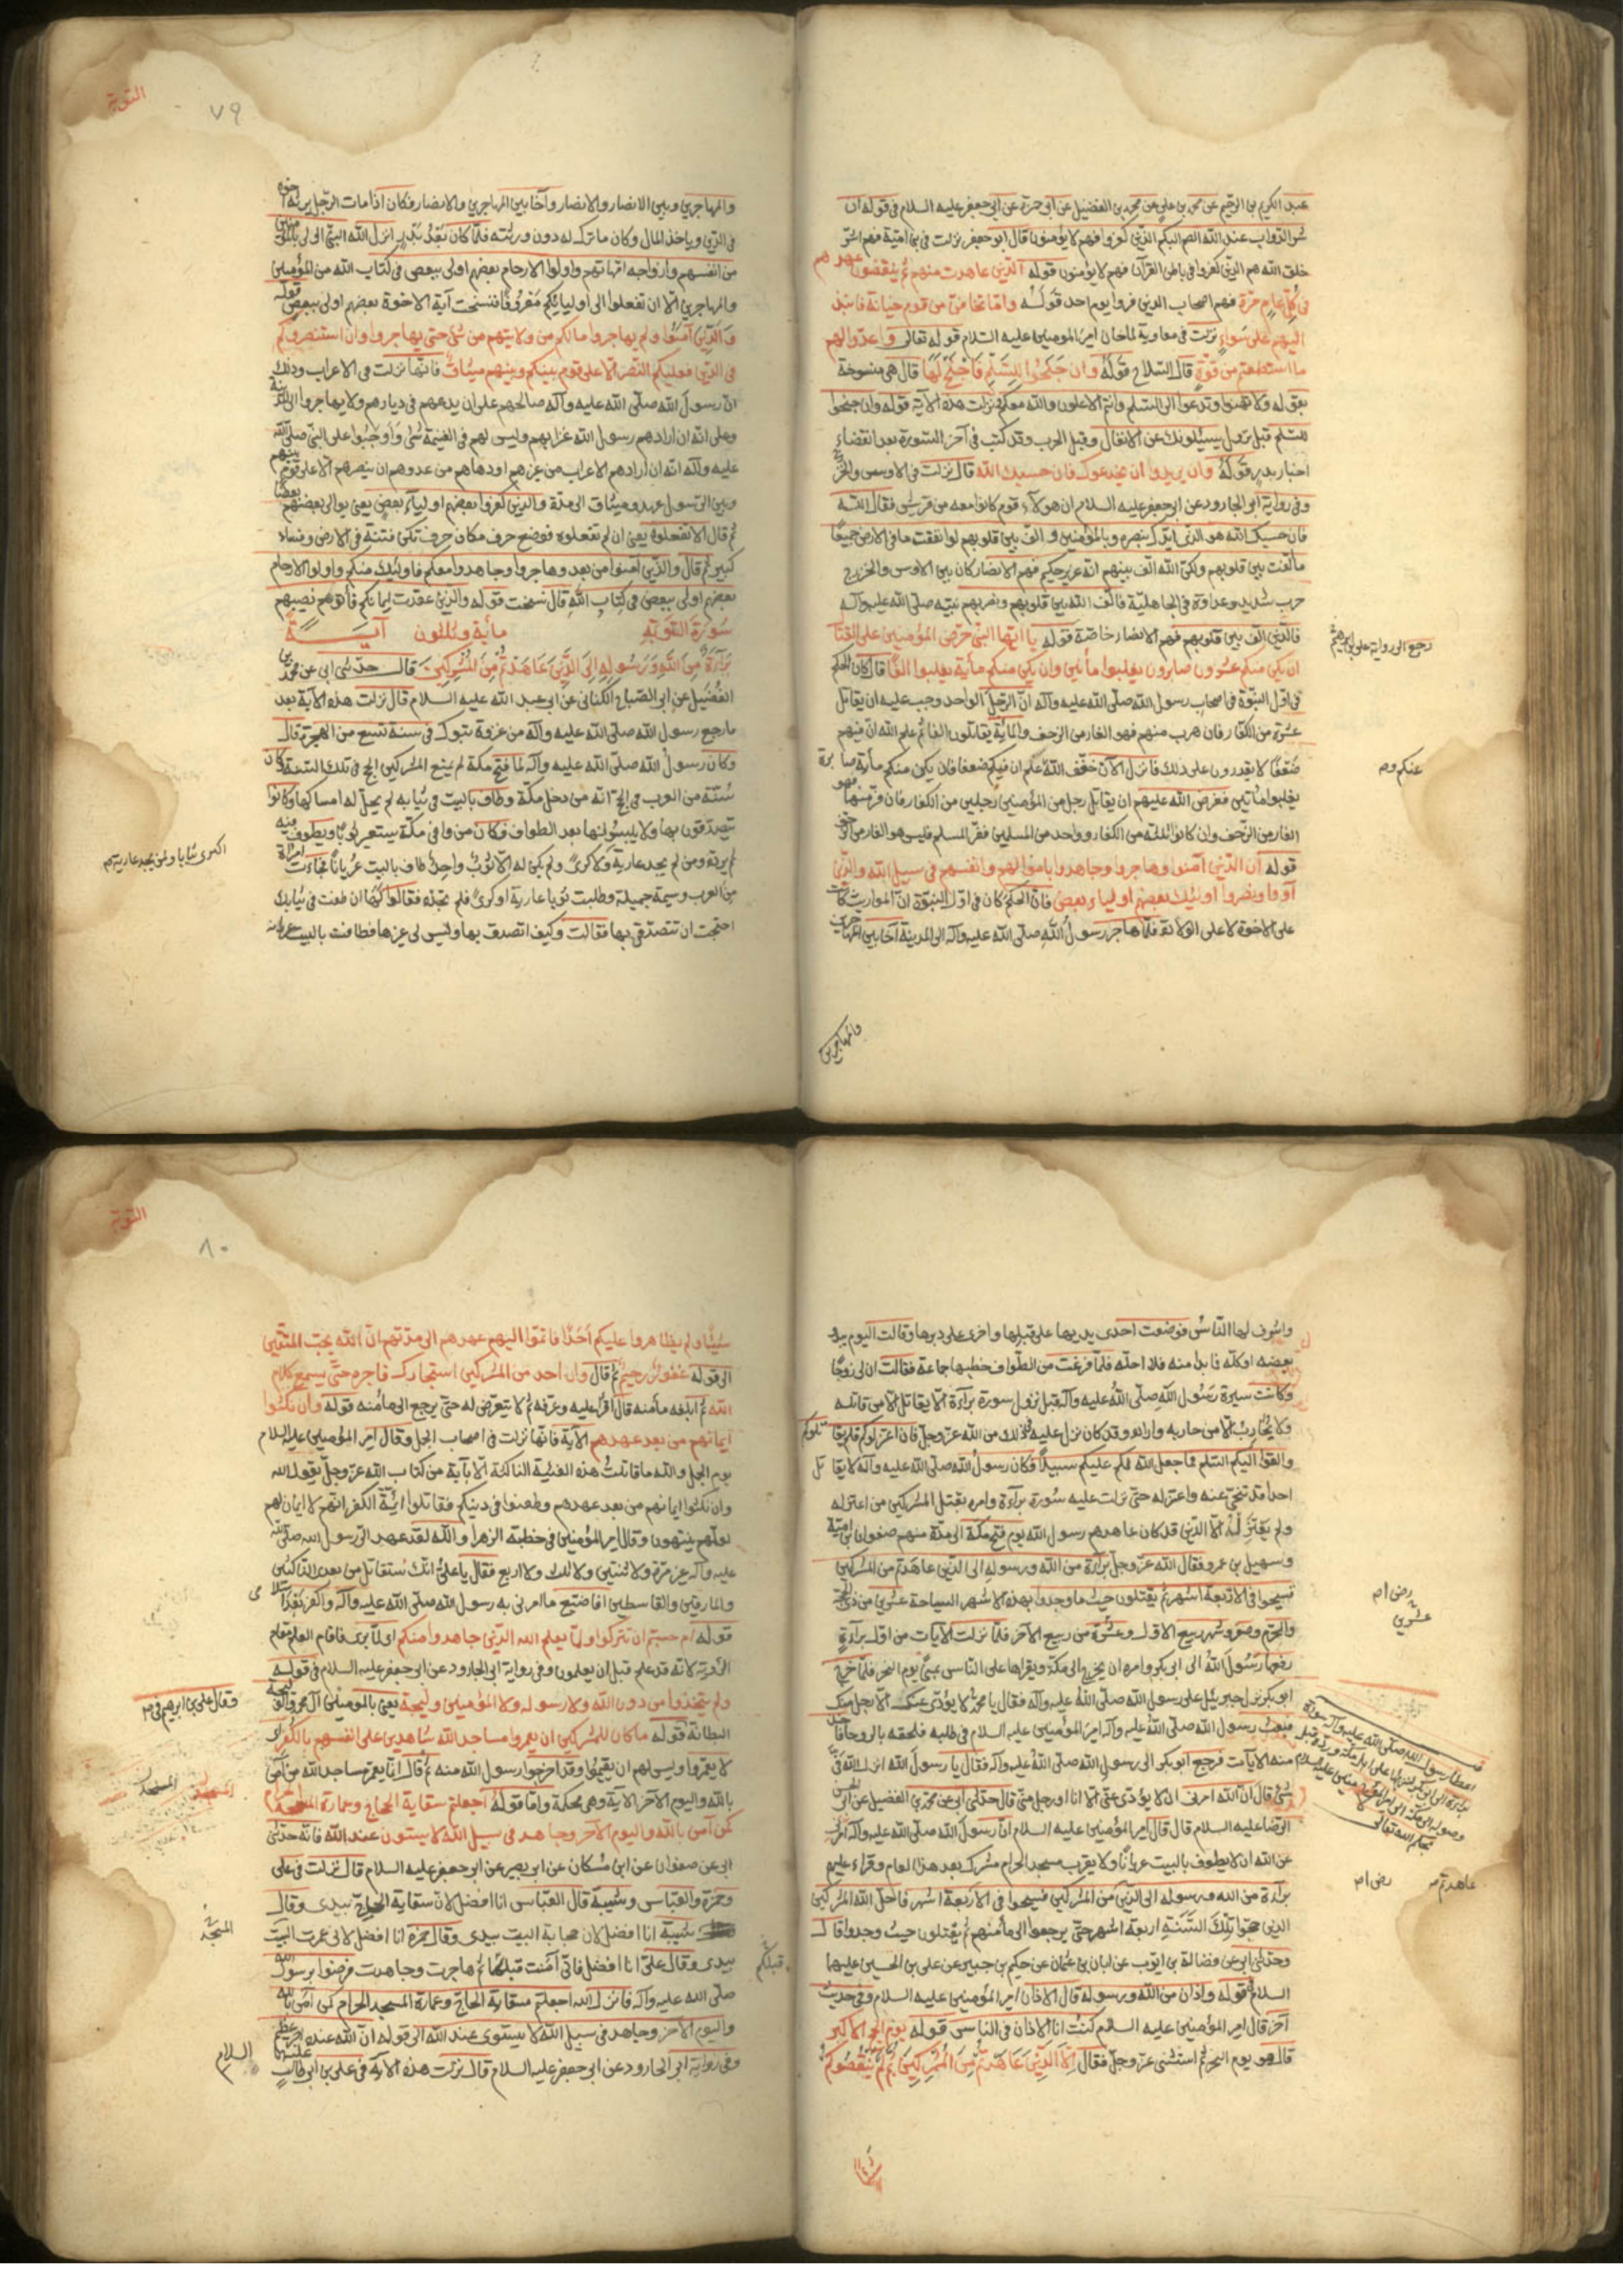 عبد الكريم بن الرحيم عن محمد بن علي عن محمد بن الفضيل عن ابي حمزة عن ابي جعفر عليه السلام في قوله ان
شر الدواب عند الله الصم البكم الذين كفروا فهم لا يؤمنون قال ابو جعفر نزلت في بني امية فهم اشر
خلق الله هم الذين كفروا في باطن القرآن فهم لا يؤمنون قوله الذين عاهدت منهم ثم ينقضون عهدهم
في كل عام مرة فهم اصحاب الذين فروا يوم احد قوله واما تخافن من قوم خيانة فانبذ
اليهم على سواء نزلت في معاوية لما خان امير المؤمنين عليه السلام قوله تعالى واعدوا لهم
ما استطعتم من قوة قال السلاح قوله وان جنحوا للسلم فاجنح لها قال هي منسوخة
بقوله ولا تهنوا وتدعوا الى السلم وانتم الاعلون والله معكم نزلت هذه الآية قوله وان جنحوا
للسلم قبل نزول يسئلونك عن الانفال وقبل الحرب وقد كتب في آخر السورة بعد انقضاء
اخبار بدر قوله وان يريدوا ان يخدعوك فان حسبك الله قال نزلت في الاوس والخزرج
وفي رواية ابو الجارود عن ابو جعفر عليه السلام ان هولاء قوم كانوا معه من قريش فقال الله
فان حسبك الله هو الذي ايدك بنصره وبالمؤمنين والف بين قلوبهم لو انفقت ما في الارض جميعا
ما الفت بين قلوبهم ولكن الله الف بينهم انه عزيز حكيم فهم الانصار كان بين الاوس والخزرج
حرب شديد وعداوة في الجاهلية فالف الله بين قلوبهم ونصر بهم نبيه صلى الله عليه وآله
فالذين الف بين قلوبهم فهم الانصار خاصة قوله يا ايها النبي حرض المؤمنين على القتال
رجع الى رواية علي بن ابرهيم
ان يكن منكم عشرون صابرون يغلبوا مأتين وان يكن منكم مأية يغلبوا الفا قال كان الحكم
في اول النبوة في اصحاب رسول الله صلى الله عليه وآله ان الرجل الواحد وجب عليه ان يقاتل
عشرة من الكفار فان هرب منهم فهو الفار من الزحف والمائة يقاتلون الفا ثم علم الله ان فيهم
ضعفا لا يقدرون على ذلك فانزل الآن خفف الله عنكم ان فيكم ضعفا فان يكن منكم مأية صابرة
عنكم وم
يغلبوا مائتين ففرض الله عليهم ان يقاتل رجل من المؤمنين رجلين من الكفار فان فر منهما فهو
الفار من الزحف وان كانوا ثلثة من الكفار وواحد من المسلمين ففر المسلم فليس هو الفار من الزحف
قوله ان الذين آمنوا وهاجروا وجاهدوا باموالهم وانفسهم في سبيل الله والذين
آووا ونصروا اوليك بعضهم اولياء بعض فان الحكم كان في اول النبوة ان المواريث كانت
على الاخوة لا على الولادة فلما هاجر رسول الله صلى الله عليه وآله الى المدينة آخا بين المهاجرين
والمهاجرين
التوبة
٧٩
والمهاجرين وبين الانصار والانصار وآخا بين المهاجرين والانصار فكان اذا مات الرجل يرثه اخوه
في الدين وياخذ المال وكان ما ترك له دون ورثته فلما كان بعد بدر انزل الله النبي اولى بالمؤمنين
من انفسهم وازواجه امهاتهم واولوا الارحام بعضهم اولى ببعض في كتاب الله من المؤمنين
والمهاجرين الا ان تفعلوا الى اوليايكم معروفا فنسخت آية الاخوة بعضهم اولى ببعض قوله
والذين آمنوا ولم يهاجروا مالكم من ولايتهم من شئ حتى يهاجروا وان استنصروكم
في الدين فعليكم النصر الا على قوم بينكم وبينهم ميثاق فانها نزلت في الاعراب وذلك
ان رسول الله صلى الله عليه وآله صالحهم على ان يدعهم في ديارهم ولا يهاجروا الى المدينة
وعلى انه ان ارادهم رسول الله غزا بهم وليس لهم في الغنيمة شئ واوجبوا على النبي صلى الله
عليه وآله انه ان ارادهم الاعراب من غيرهم او دهاهم من عدوهم ان ينصرهم الا على قوم بينهم
وبين الرسول عهد وميثاق الى مدة والذين كفروا بعضهم اولياء بعض يعني يوالي بعضهم بعضا
ثم قال الا تفعلوه يعني ان لم تفعلوه فوضع حرف مكان حرف تكن فتنة في الارض وفساد
كبير ثم قال والذين آمنوا من بعد وهاجروا وجاهدوا معكم فاوليك منكم واولوا الارحام
بعضهم اولى ببعض في كتاب الله قال نسخت قوله والذين عقدت ايمانكم فأتوهم نصيبهم
سورة التوبة مأية وثلثون آيــة
برآءة من الله ورسوله الى الذين عاهدتم من المشركين قال حدثني ابي عن محمد بن
الفضيل عن ابي الصباح الكناني عن ابي عبد الله عليه السلام قال نزلت هذه الآية بعد
ما رجع رسول الله صلى الله عليه وآله من غزوة تبوك في سنة تسع من الهجرة قال
وكان رسول الله صلى الله عليه وآله لما فتح مكة لم يمنع المشركين الحج في تلك السنة وكان
سنة من العرب في الحج انه من دخل مكة وطاف بالبيت في ثيابه لم يحل له امساكها وكانوا
يتصدقون بها ولا يلبسونها بعد الطواف فكان من وافى مكة يستعير ثوبا ويطوف فيه
ثم يرده ومن لم يجد عارية ولا كرى ولم يكن له الا ثوب واحد طاف بالبيت عريانا فجاءت امراة
اكترى ثيابا ولمن يجد عارية م
من العرب وسيمة جميلة وطلبت ثوبا عارية او كرى فلم تجده فقالوا لها ان طفت في ثيابك
احتجت ان تتصدقي بها فقالت وكيف اتصدق بها وليس لي غيرها فطافت بالبيت عريانة
واشرف لها الناس فوضعت احدى يديها على قبلها واخرى على دبرها وقالت اليوم يبدو
بعضه او كله فما بدا منه فلا احله فلما فرغت من الطواف خطبها جماعة فقالت ان لي زوجا
وكانت سيرة رسول الله صلى الله عليه وآله قبل نزول سورة برآءة الا يقاتل الا من قاتله
ولا يحارب الا من حاربه واراده وقد كان نزل عليه ذلك من الله عز وجل فان اعتزلوكم فلم يقاتلوكم
والقوا اليكم السلم فما جعل الله لكم عليهم سبيلا فكان رسول الله صلى الله عليه وآله لا يقاتل
احدا قد تنحى عنه واعتزله حتى نزلت عليه سورة برآءة وامره بقتل المشركين من اعتزله
ولم يعتزله الا الذين قد كان عاهدهم رسول الله يوم فتح مكة الى مدة منهم صفوان بن امية
وسهيل بن عمرو فقال الله عز وجل برآءة من الله ورسوله الى الذين عاهدتم من المشركين
فسيحوا في الاربعة اشهر ثم يقتلون حيث ما وجدوا بهذه الاشهر السياحة عشرين من ذي الحجة
عشرين
والمحرم وصفر وشهر ربيع الاول وعشرة من ربيع الآخر فلما نزلت الآيات من اول برآءة
دفعها رسول الله الى ابو بكر وامره ان يخرج الى مكة ويقراها على الناس بمنى يوم النحر فلما خرج
ابو بكر نزل جبريل على رسول الله صلى الله عليه وآله فقال يا محمد لا يؤدي عنك الا رجل منك
فبعث رسول الله صلى الله عليه وآله امير المؤمنين عليه السلام في طلبه فلحقه بالروحا فاخذ
منه الآيات فرجع ابو بكر الى رسول الله صلى الله عليه وآله فقال يا رسول الله انزل الله في
شئ قال ان الله امرني ان لا يؤدي عني الا انا او رجل مني قال حدثني ابو عن محمد بن الفضيل عن ابي الحسن
الرضا عليه السلام قال قال امير المؤمنين عليه السلام ان رسول الله صلى الله عليه وآله امرني
عن الله ان لا يطوف بالبيت عريانا ولا يقرب مسجد الحرام مشرك بعد هذا العام وقراء عليهم
برآءة من الله ورسوله الى الذين من المشركين فسيحوا في الاربعة اشهر فاحل الله المشركين
عاهدتم
الذين حجوا تلك السنة اربعة اشهر حتى يرجعوا الى مأمنهم ثم يقتلون حيث وجدوا قال
وحدثني ابو عن فضالة بن ايوب عن ابان بن عثمان عن حكيم بن جبير عن علي بن الحسين عليهما
السلام قوله واذان من الله ورسوله قال الاذان امير المؤمنين عليه السلام وفي حديث
آخر قال امير المؤمنين عليه السلام كنت انا الاذان في الناس قوله يوم الحج الاكبر
قال هو يوم النحر ثم استثنى عز وجل فقال الا الذين عاهدتم من المشركين ثم لم ينقصوكم
التوبة
٨٠
شيئا ولم يظاهروا عليكم احدا فاتموا اليهم عهدهم الى مدتهم ان الله يحب المتقين
الى قوله غفور رحيم ثم قال وان احد من المشركين استجارك فاجره حتى يسمع كلام
الله ثم ابلغه مأمنه قال اقرأ عليه وعرفه ثم لا يتعرض له حتى يرجع الى مأمنه قوله وان نكثوا
ايمانهم من بعد عهدهم الآية فانها نزلت في اصحاب الجمل وقال امير المؤمنين عليه السلام
يوم الجمل والله ما قاتلت هذه الفئية الناكثة الا بآية من كتاب الله عز وجل يقول الله
وان نكثوا ايمانهم من بعد عهدهم وطعنوا في دينكم فقاتلوا ائمة الكفر انهم لا ايمان لهم
لعلهم ينتهون وقال امير المؤمنين في خطبته الزهرا والله لقد عهد الي رسول الله صلى الله
عليه وآله غير مرة ولا ثنتين ولا ثلث ولا اربع فقال يا علي انك ستقاتل من بعدي الناكثين
والمارقين والقاسطين افاضيع ما امرني به رسول الله صلى الله عليه وآله واكفر بعد اسلامي
قوله ام حسبتم ان تتركوا ولما يعلم الله الذين جاهدوا منكم اي لما يرى فاقام العلم مقام
الروية لانه قد علم قبل ان يعلموا وفي رواية ابي الجارود عن ابي جعفر عليه السلام في قوله
ولم يتخذوا من دون الله ولا رسوله ولا المؤمنين وليجة يعني بالمومنين آل محمد والوليجة
وقال علي بن ابرهيم في م
البطانة قوله ما كان للمشركين ان يعمروا مساجد الله شاهدين على انفسهم بالكفر اي
لا يعمروا وليس لهم ان يقيموا وقد اخرجوا رسول الله منه ثم قال انما يعمر مساجد الله من آمن
بالله واليوم الآخر الآية وهي محكمة واما قوله اجعلتم سقاية الحاج وعمارة المسجد الحرام
كمن آمن بالله واليوم الآخر وجاهد في سبيل الله لا يستون عند الله فانه حدثني
ابي عن صفوان عن ابن مسكان عن ابو بصير عن ابو جعفر عليه السلام قال نزلت في علي
وحمزة والعباس وشيبة قال العباس انا افضل لان سقاية الحاج بيدي وقال
شيبة انا افضل لان حجابة البيت بيدي وقال حمزة انا افضل لاني عمرت البيت
بيدي وقال علي انا افضل فاني آمنت قبلكما ثم هاجرت وجاهدت فرضوا برسول الله
قبلكم
صلى الله عليه وآله فانزل الله اجعلتم سقاية الحاج وعمارة المسجد الحرام كمن آمن بالله
واليوم الآخر وجاهد في سبيل الله لا يستوى عند الله الى قوله ان الله عنده اجر عظيم
وفي رواية ابو الجارود عن ابو جعفر عليه السلام قال نزلت هذه الآية في علي بن ابي طالب عليهما
السلام